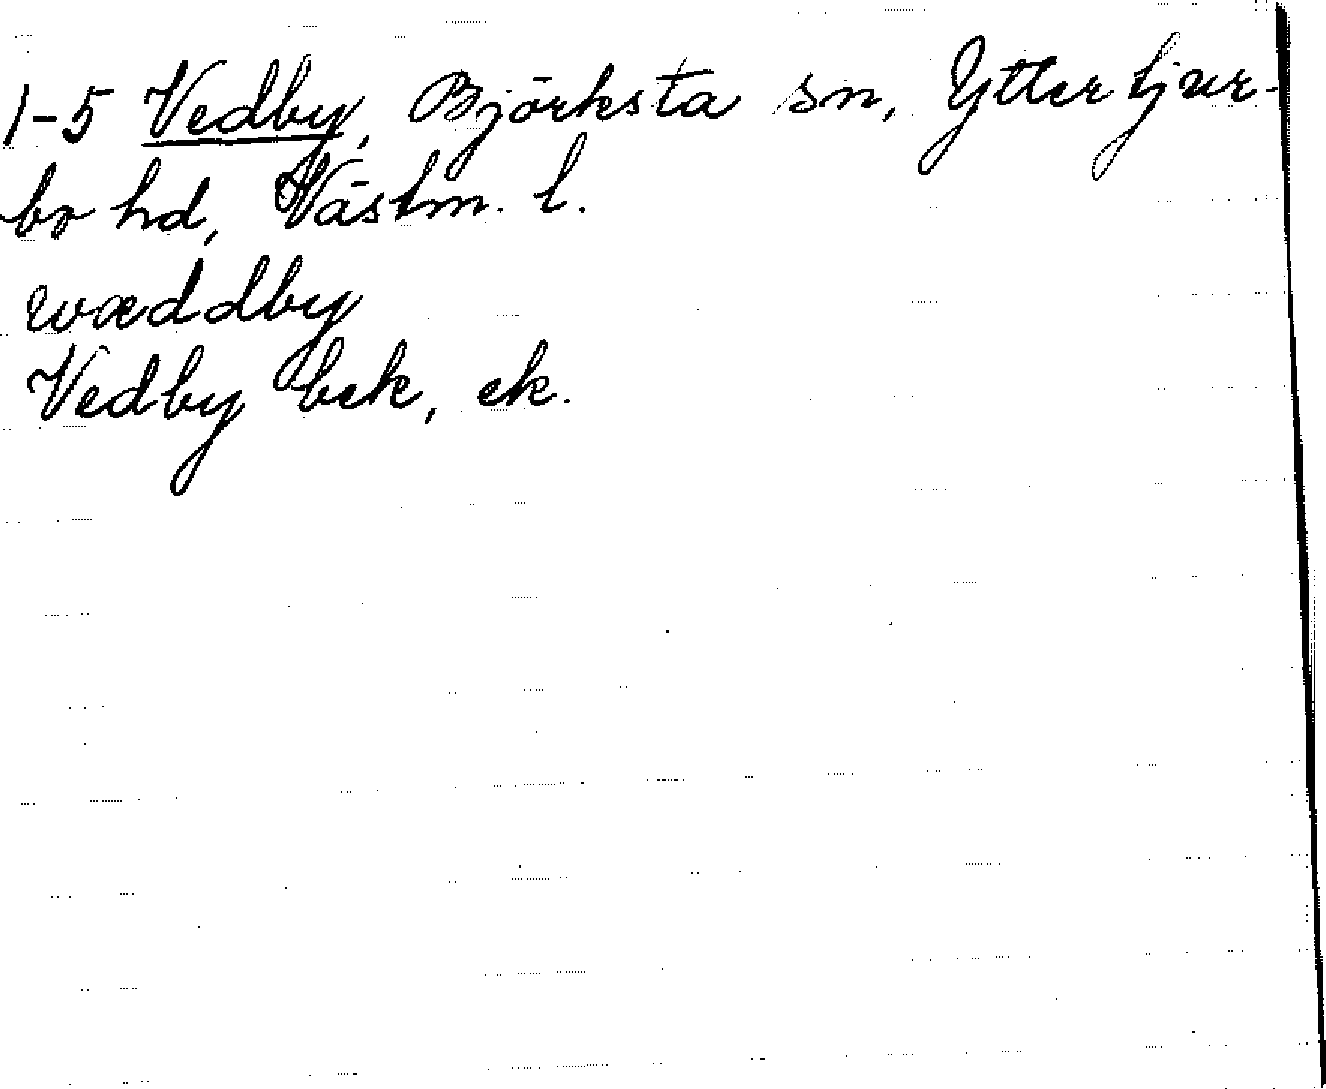 1-5 Vedby, Björksta sn, Yttertjur-
bo hd, Västm. l.
wæddby
Vedby bek, ek.